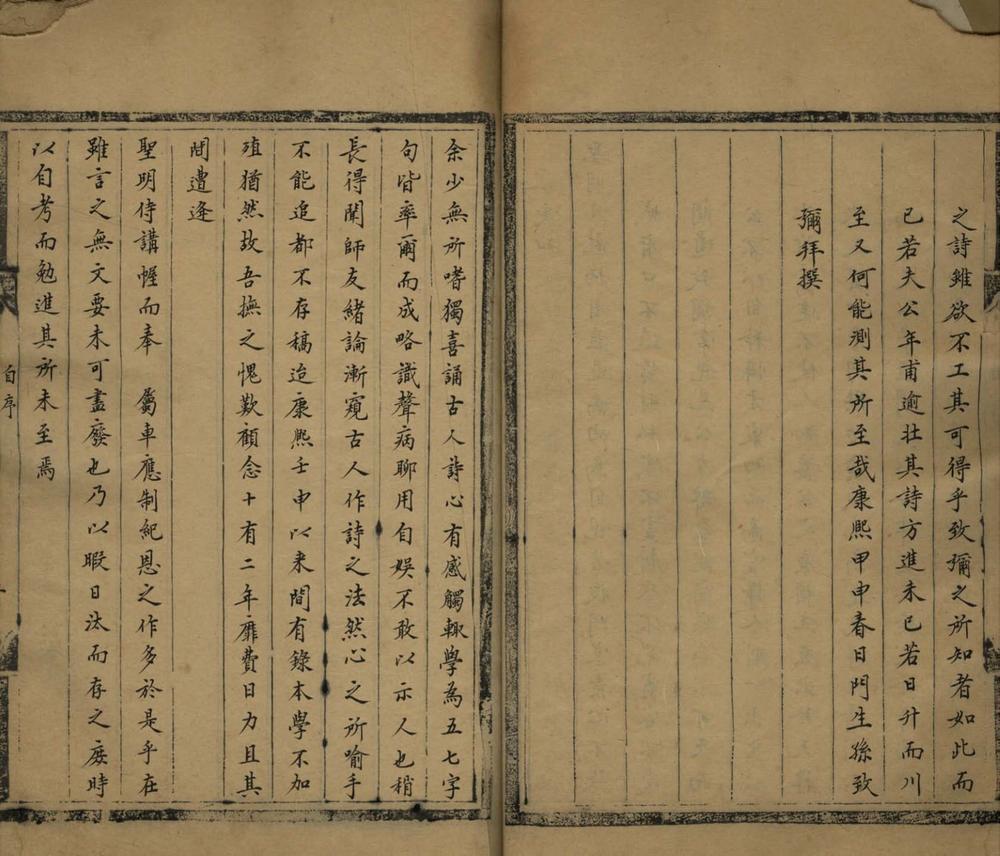 之詩雖欲不工其可得乎致彌之所知者如此而
已若夫公年甫逾壮其詩方進未已若日升而川
至又何能測其所至哉康熙甲申春日門生孫致
彌拜撰
余少無所嗜獨喜誦古人詩心有感觸輙學為五七字
句皆率爾而成略識聲病聊用自娛不敢以示人也稍
長得聞師友緒論漸窺古人作詩之法然心之所喻手
不能追都不存稿迨康熈壬申以来間有錄本學不加
殖猶然故吾撫之愧歎顧念十有二年靡費日力且其
間遭逢
聖明侍講幄而奉 屬車應制紀恩之作多於是乎在
雖言之無文要未可盡廢也乃以暇日汰而存之庶時
以自考而勉進其所未至焉
自序